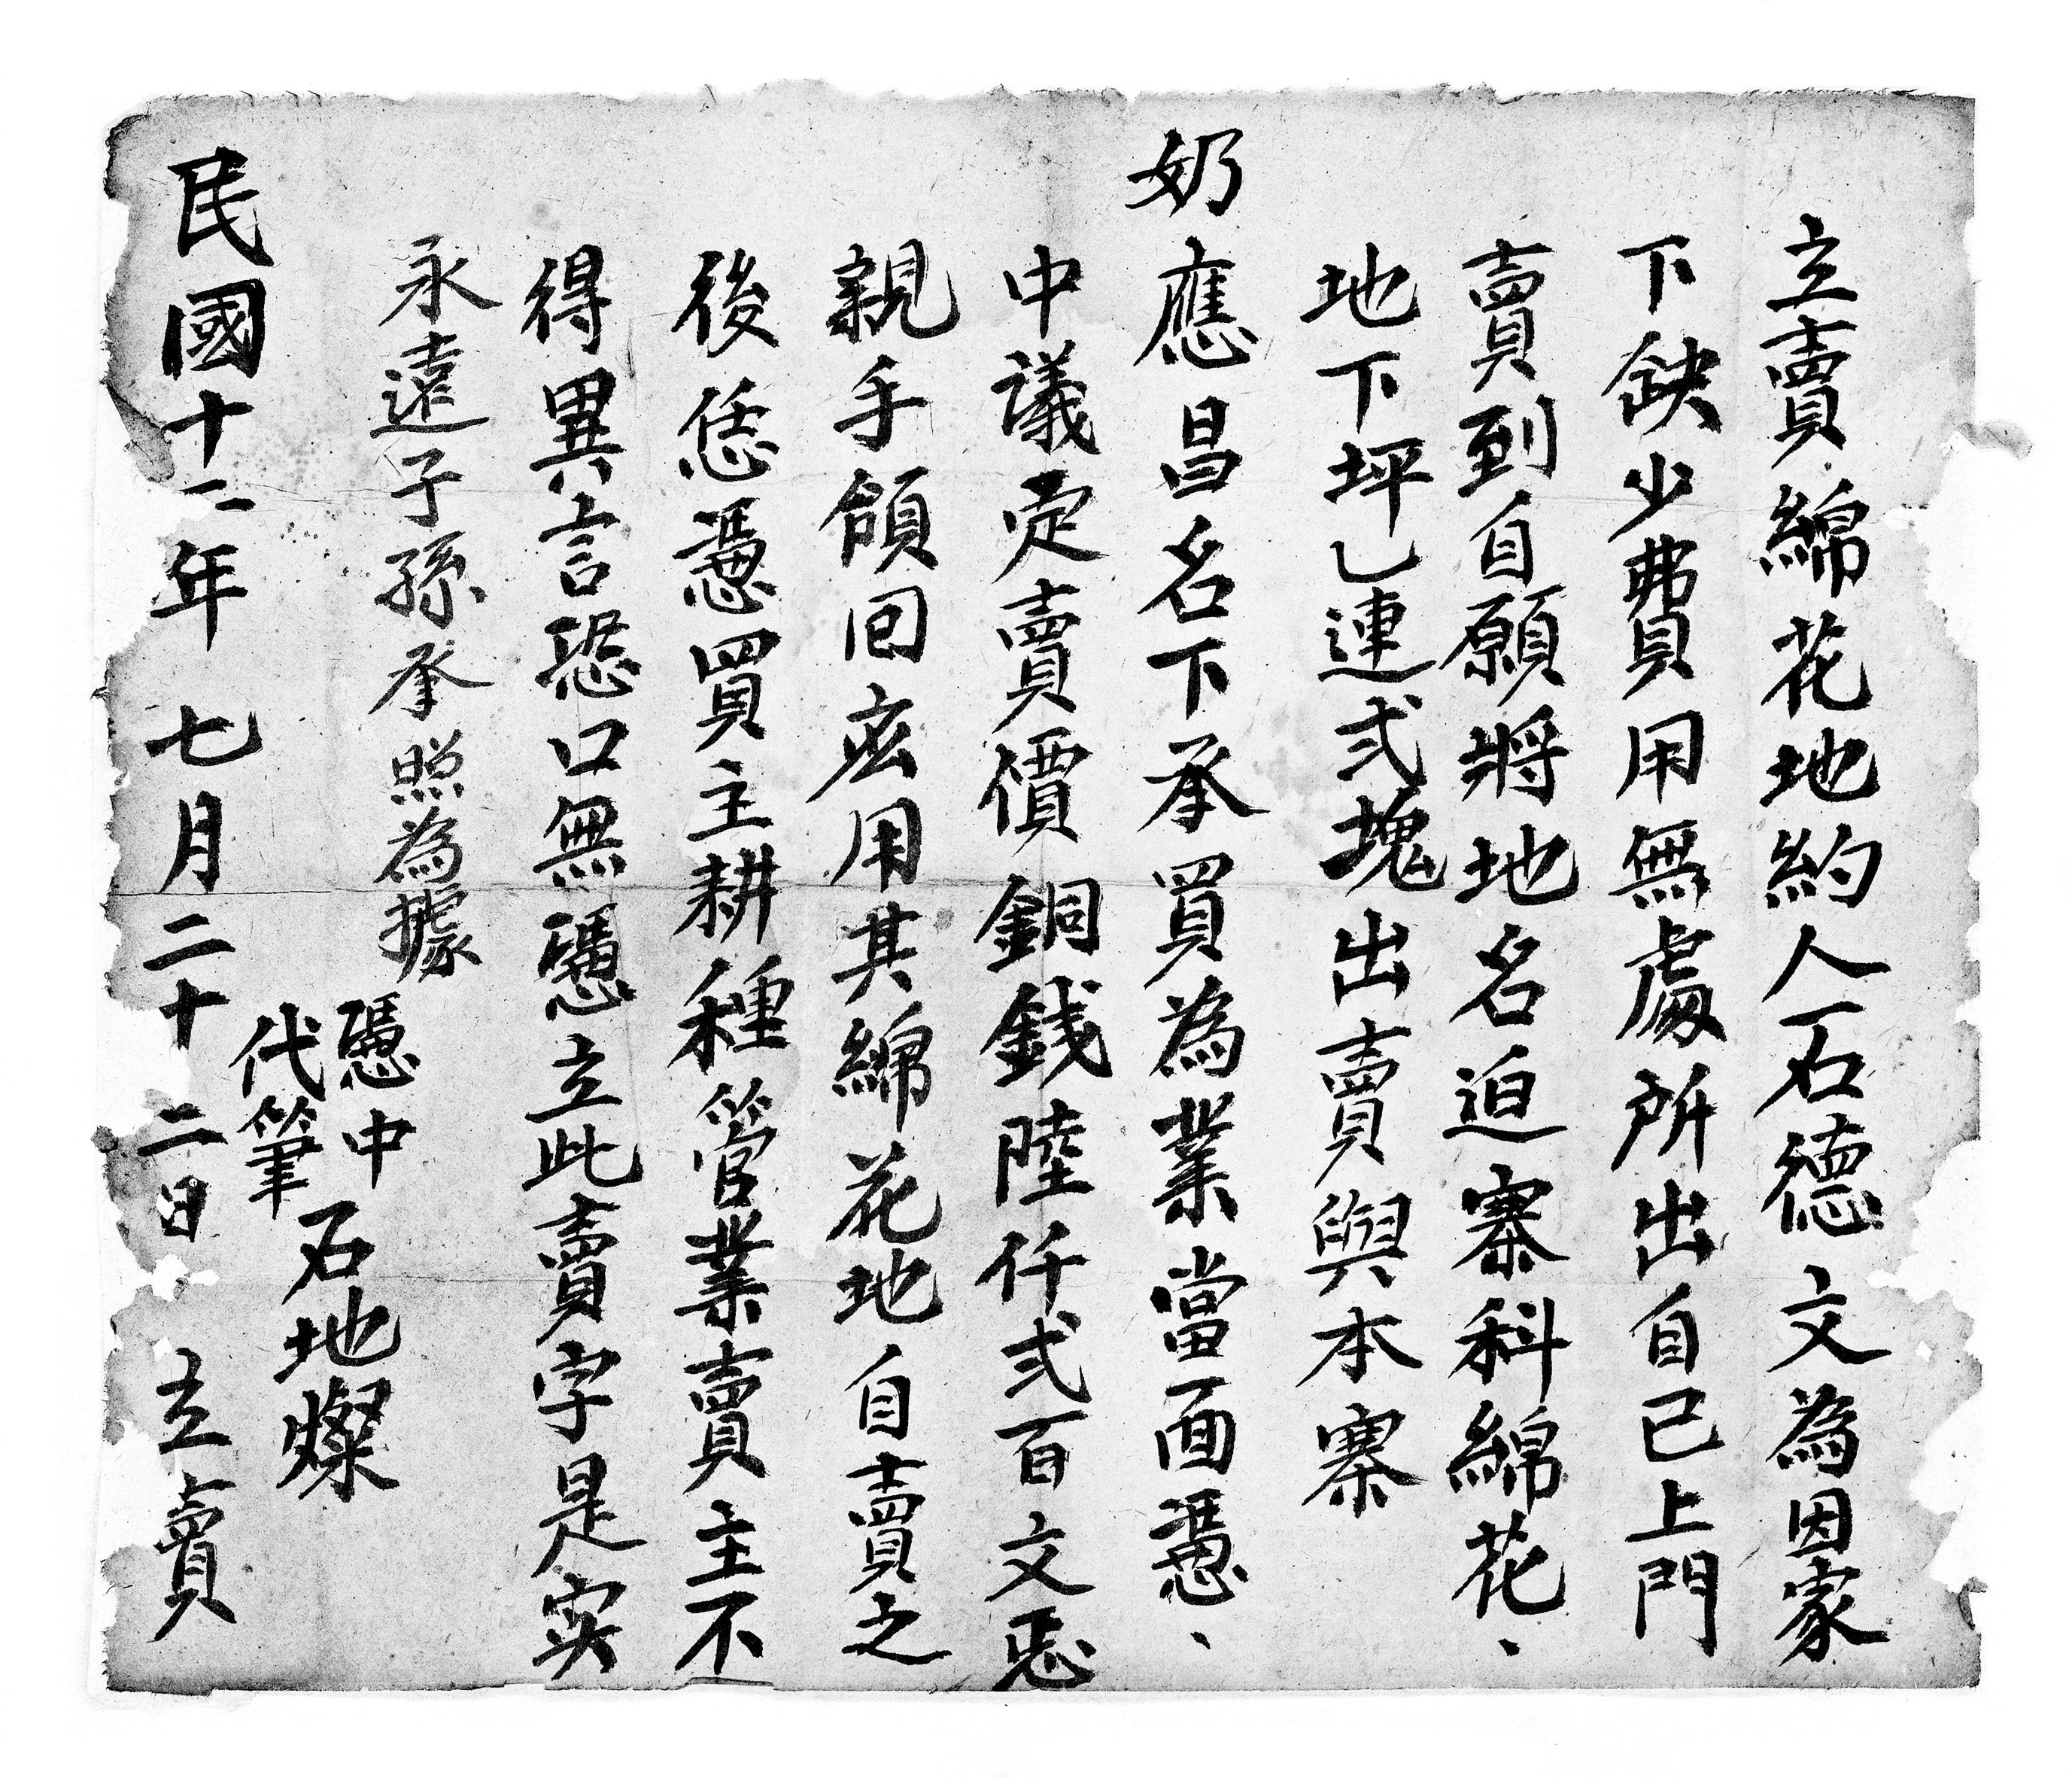 立賣綿花地約人石德文為因家
下缺少費用無處所出自己上門
賣到自願將地名迫寨科綿花、
地下坪乚連弍塊出賣與本寨
奶應昌名下承買為業當面憑、
中議定賣價銅錢陸仟弍百文
親手領回用其綿花地自賣之
後恁憑買主耕種管業賣主不
得異言恐口無憑立此賣字是实
永遠子孫承照為據
憑中
代筆
石地燦
民國十二年七月二十二日立賣